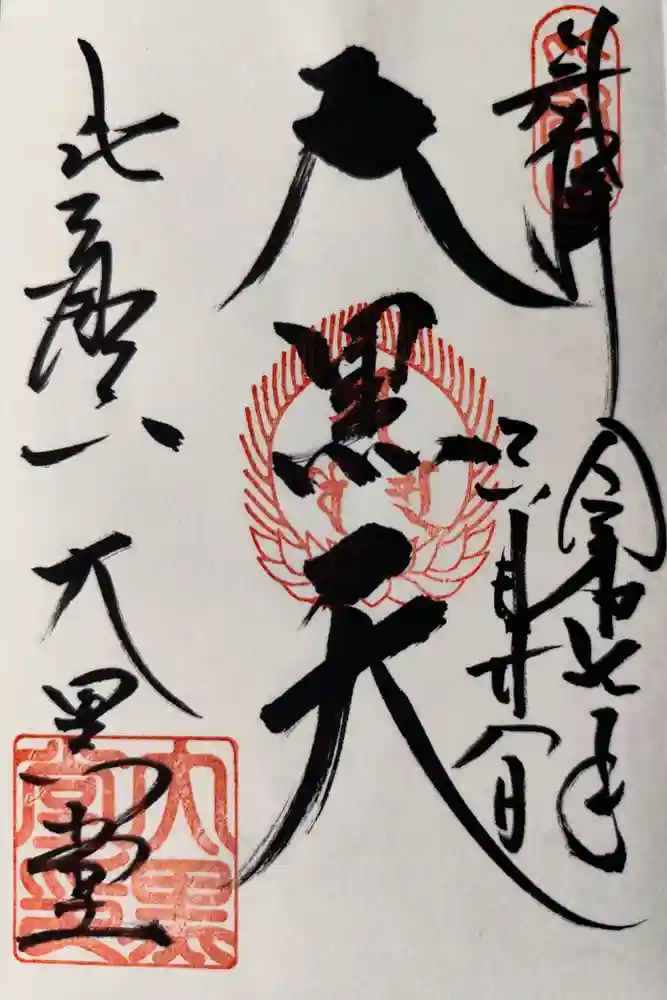 奉拝
令和七年
三月廿八日
大黒天
比叡山
大黒堂
大黒堂印